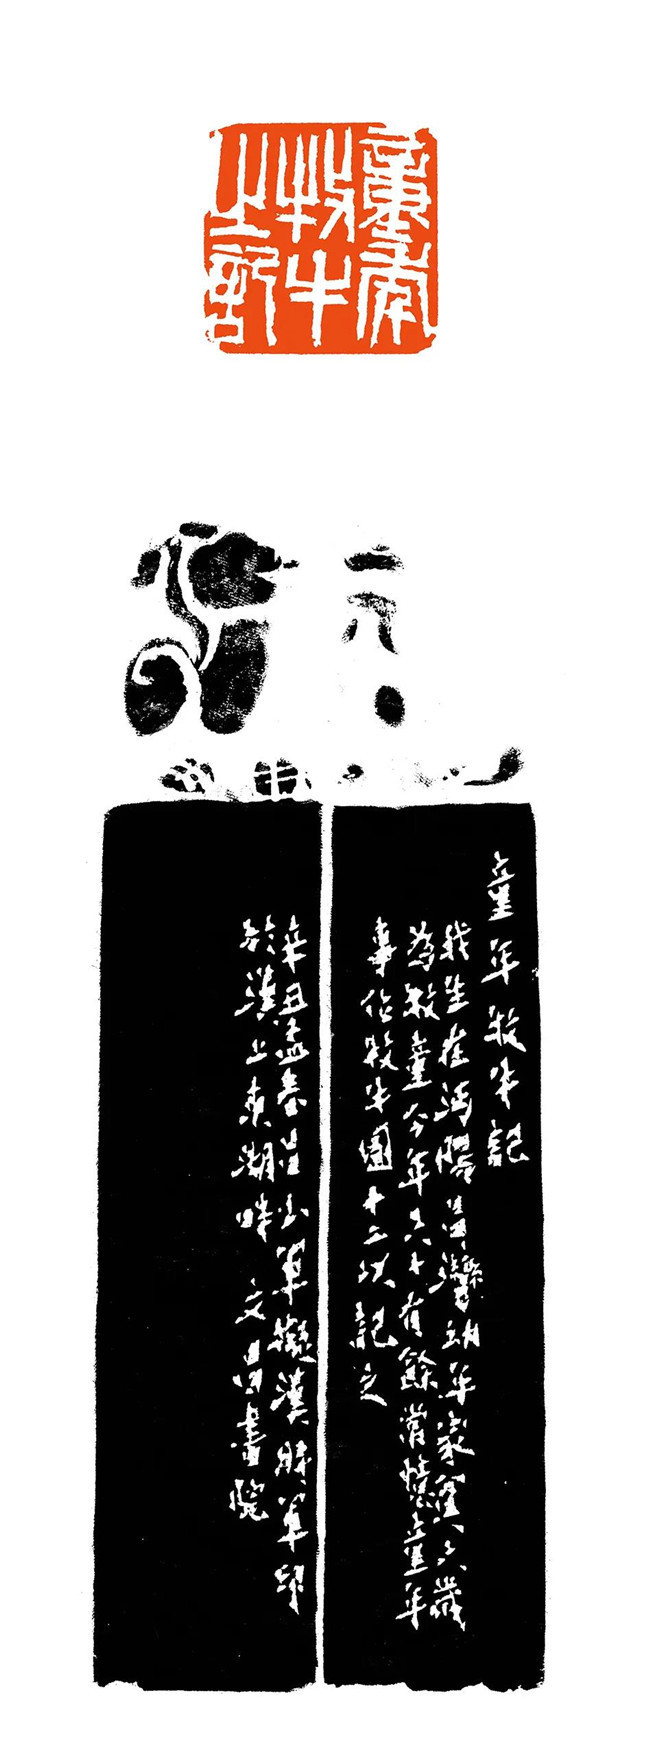 童年
牧牛
之記
童年牧牛記
我生在沔陽昌灣幼年家貧六歲
為牧童今年六十有餘常憶童年
事作牧牛圖十二以記之
辛丑孟春昌少軍擬漢將軍印
於漢上東湖畔 文昌書院